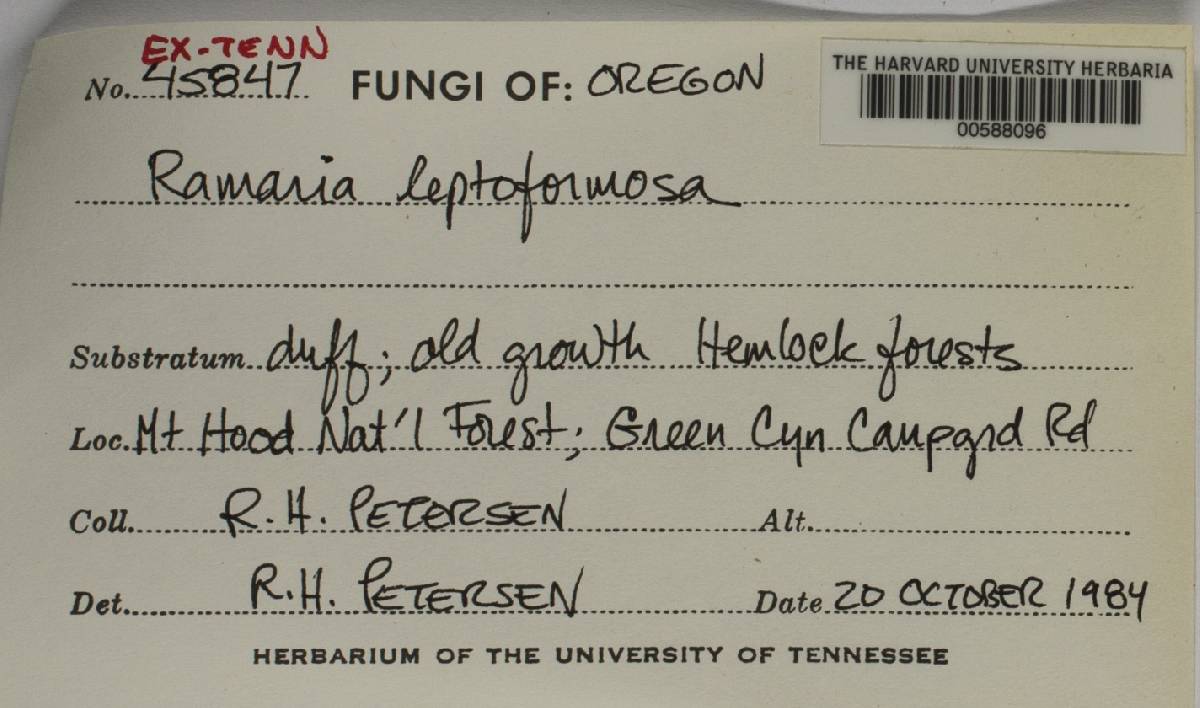 EX-TENN
No. 45847 FUNGI OF: OREGON
THE HARVARD UNIVERSITY HERBARIA
00588096
Ramaria leptoformosa
Substratum duff; old growth Hemlock forests
Loc. Mt Hood Nat'l Forest; Green Cyn Campgrd Rd
Coll. R.H. PETERSEN Alt.
Det. R.H. PETERSEN Date 20 OCTOBER 1984
HERBARIUM OF THE UNIVERSITY OF TENNESSEE